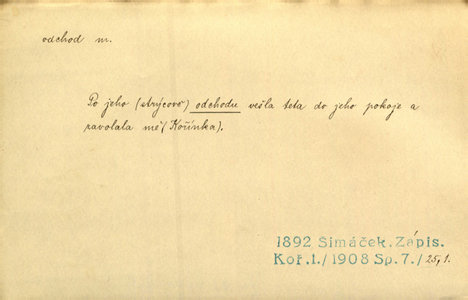 odchod m.
Po jeho (strýcově) odchodu vešla teta do jeho pokoje a
zavolala mě (Kořínka).
1892 Šimáček. Zápis.
Koř. 1./1908 Sp. 7./25, 1.